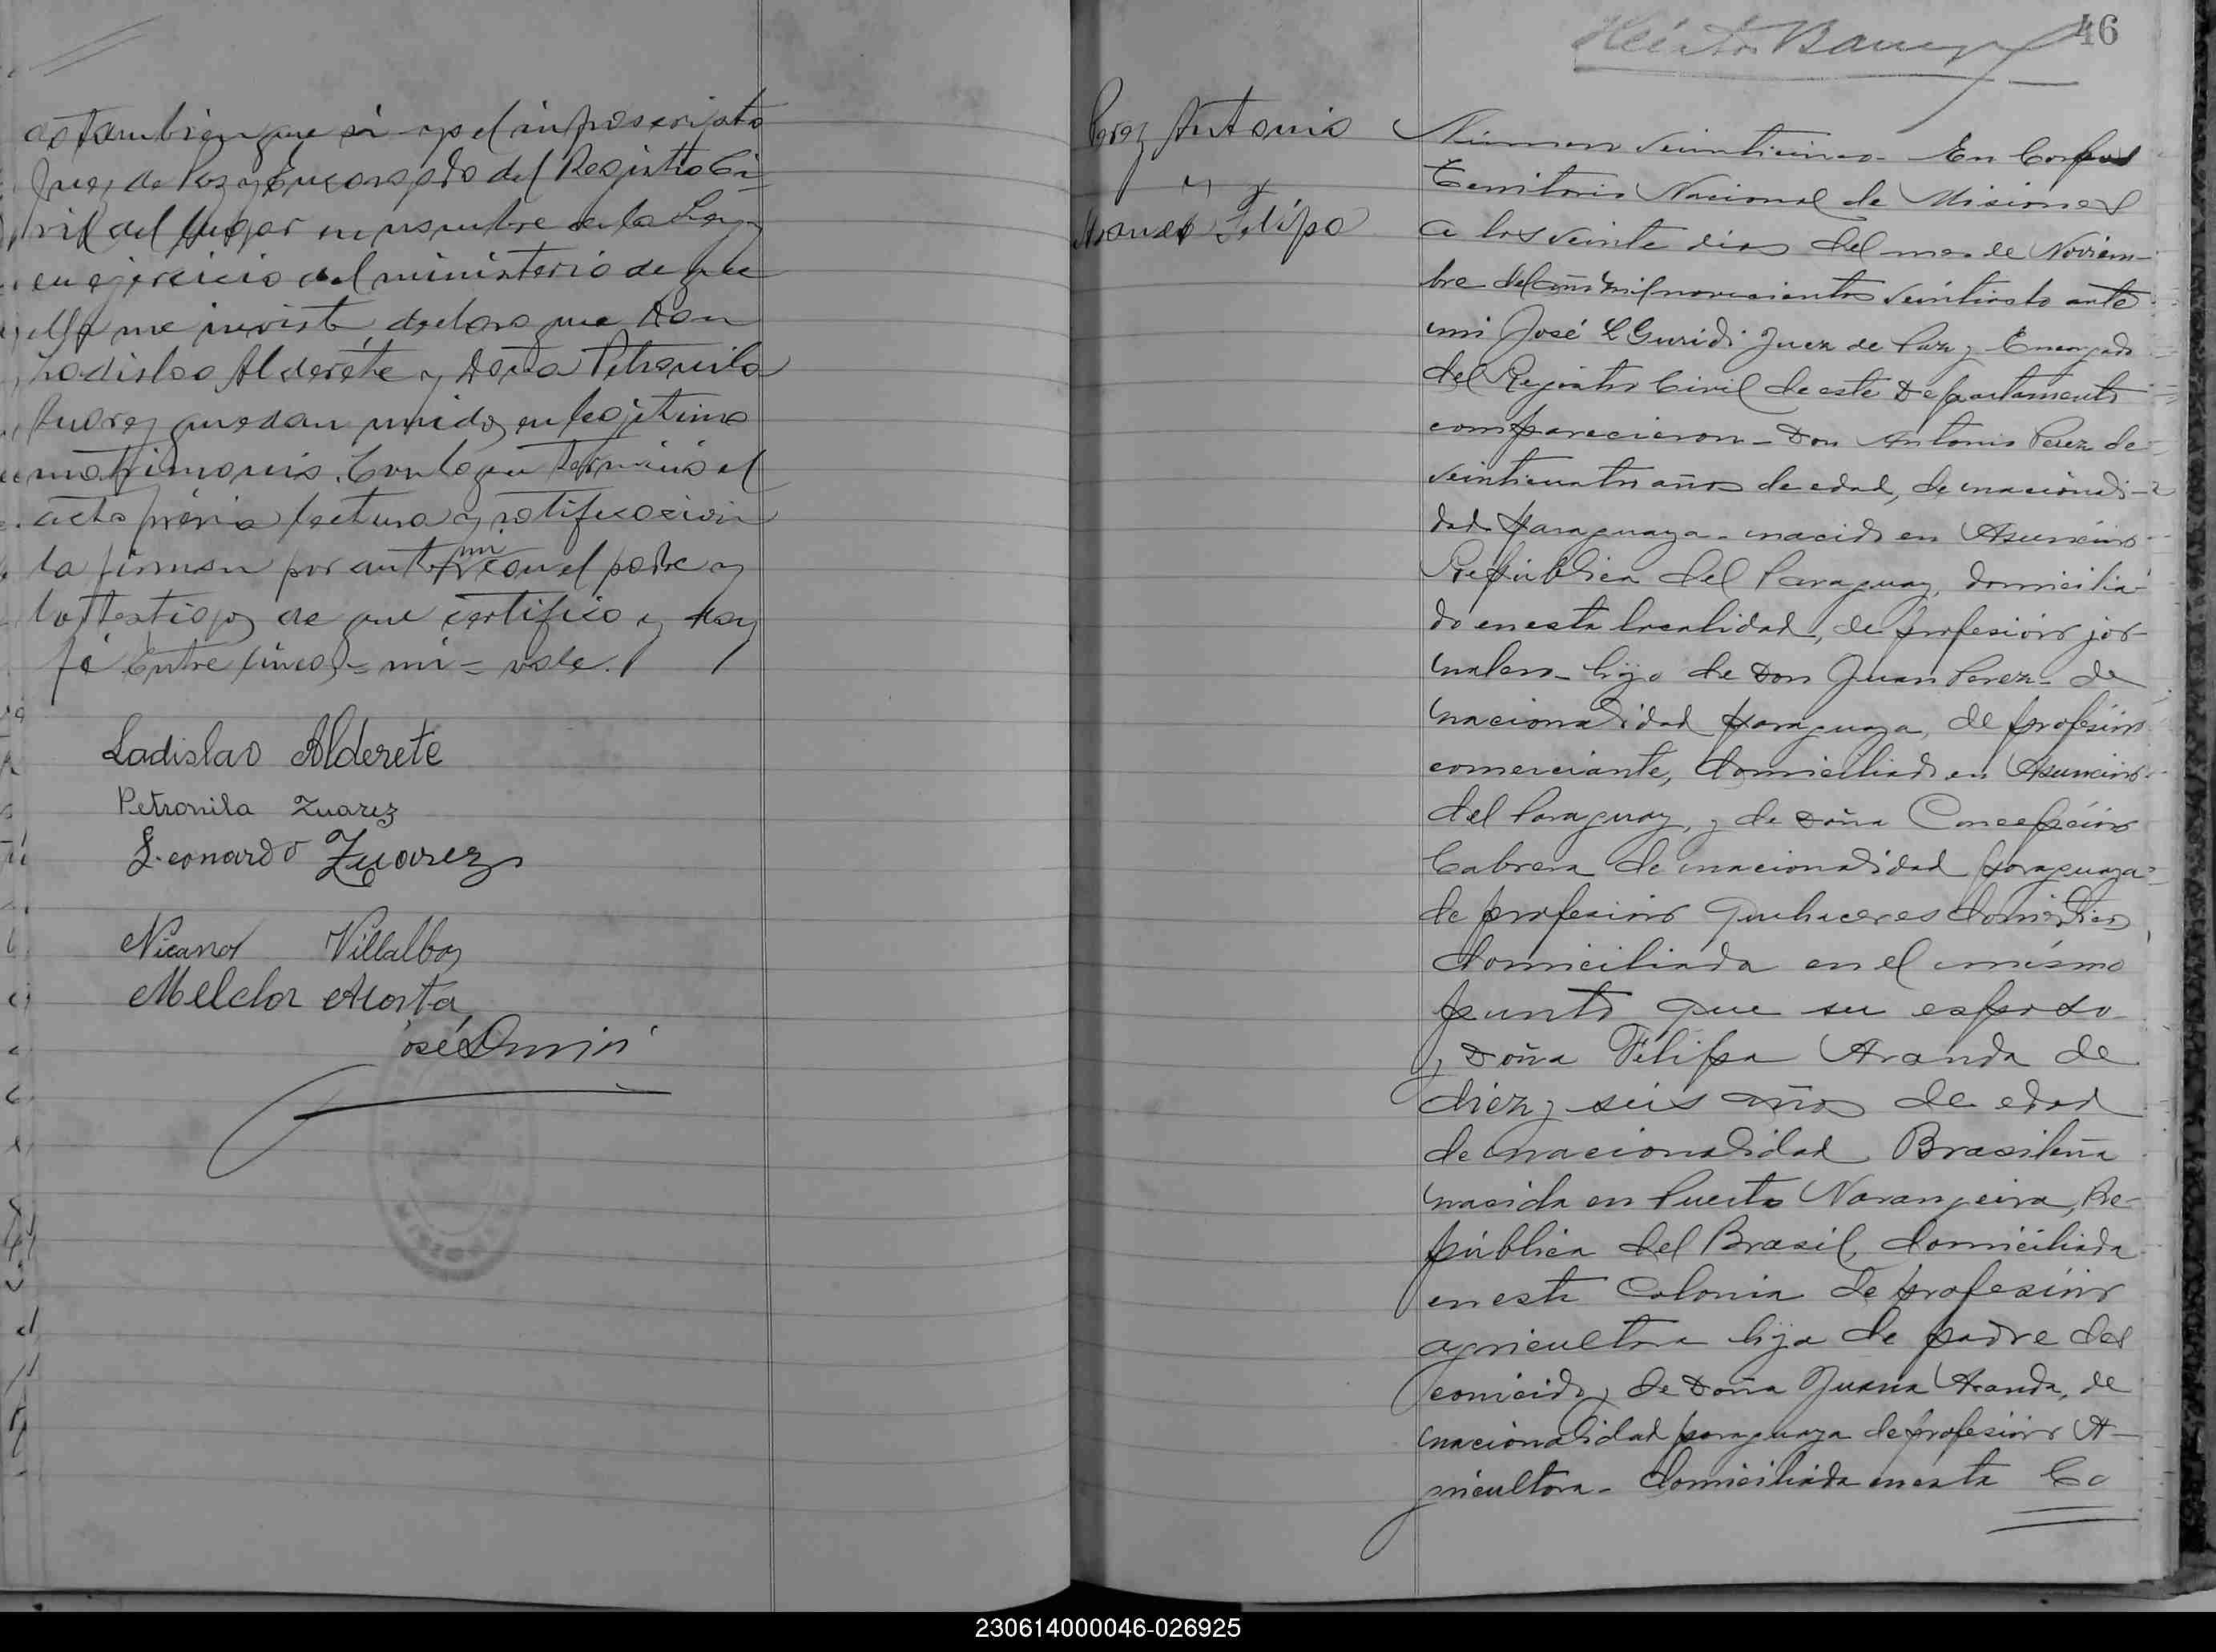 acto tambien que si yo el infrascripto
Juez de Paz y Encargado del Registro Ci-
vil del lugar en nombre de la Ley y
en ejercicio del ministerio de que
ella me inviste, declaro que Don
Ladislao Alderete y Doña Petronila
Zuarez quedan unidos en legitimo
matrimonio. Con lo que terminó el
acto prévia lectura y ratificacion
la firman por ante mi con el padre y
los testigos de que certifico y doy
fé Entre lineas = mi = vale.
Ladislao Alderete
Petronila Zuarez
Leonardo Zuarez
Nicanor Villalba
Melchor Acosta
José
46
Perez Antonio
y
Aranda Felipa
Número veinticinco - En Corpus
Territorio Nacional de Misiones
a los veinte dias del mes de Noviem-
bre del año mil novecientos veintiocho ante
mi José L Guridi Juez de Paz y Encargado
del Registro Civil de este Departamento
comparecieron - Don Antonio Perez de
veinticuatro años de edad, de nacionali-
dad paraguaya - nacido en Asunción
República del Paraguay, domicilia-
do en esta localidad, de profesión jor-
nalero - hijo de Don Juan Perez - de
nacionalidad paraguaya, de profesión
comerciante, domiciliado en Asunción
del Paraguay, y de Doña Concepción
Cabrera de nacionalidad paraguaya
de profesión quehaceres domésticos
domiciliada en el mismo
punto que su esposo
y Doña Felipa Aranda de
diez y seis años de edad
de nacionalidad Brasileña
nacida en Puerto Naranjeira, Re-
pública del Brasil, domiciliada
en esta Colonia de profesión
agricultora hija de padre des
conocido y de Doña Juana Aranda, de
nacionalidad paraguaya de profesión A-
gricultora - domiciliada en esta Co
230614000046-026925